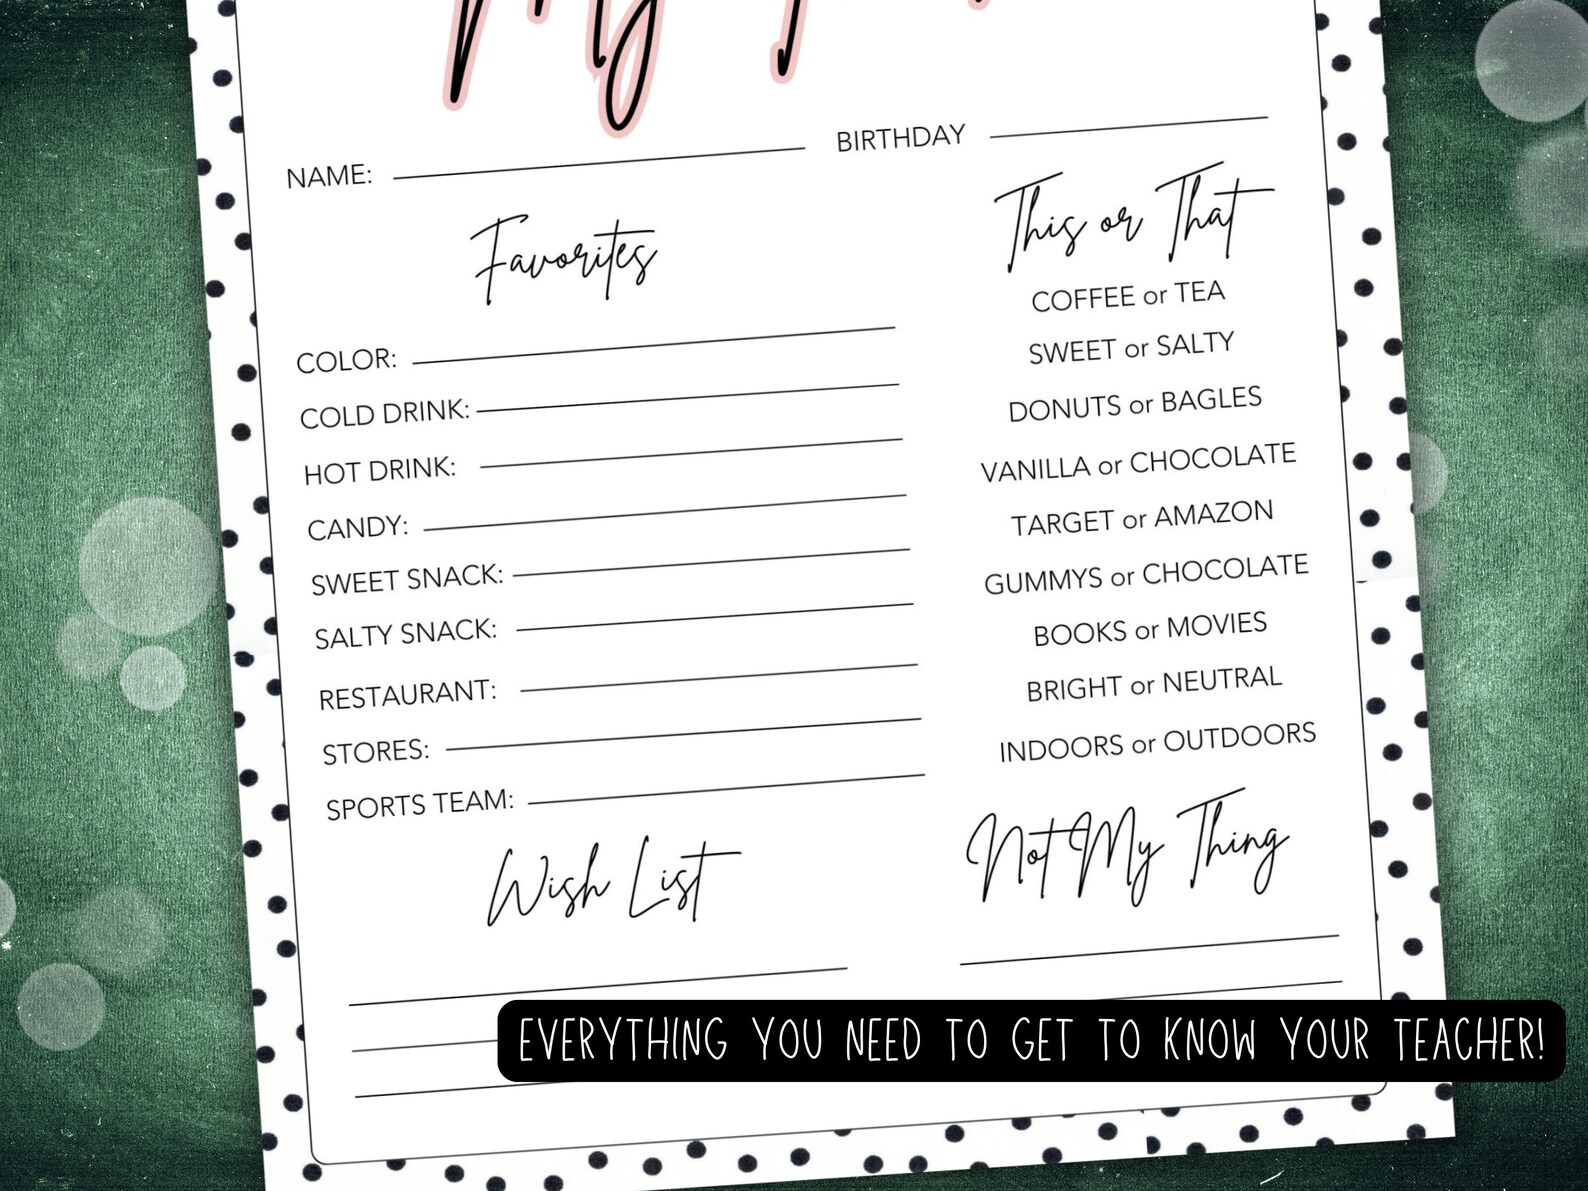 My
NAME:
BIRTHDAY
Favorites
COLOR:
COLD DRINK:
HOT DRINK:
CANDY:
SWEET SNACK:
SALTY SNACK:
RESTAURANT:
STORES:
SPORTS TEAM:
This or That
COFFEE or TEA
SWEET or SALTY
DONUTS or BAGLES
VANILLA or CHOCOLATE
TARGET or AMAZON
GUMMYS or CHOCOLATE
BOOKS or MOVIES
BRIGHT or NEUTRAL
INDOORS or OUTDOORS
Wish List
Not My Thing
EVERYTHING YOU NEED TO GET TO KNOW YOUR TEACHER!